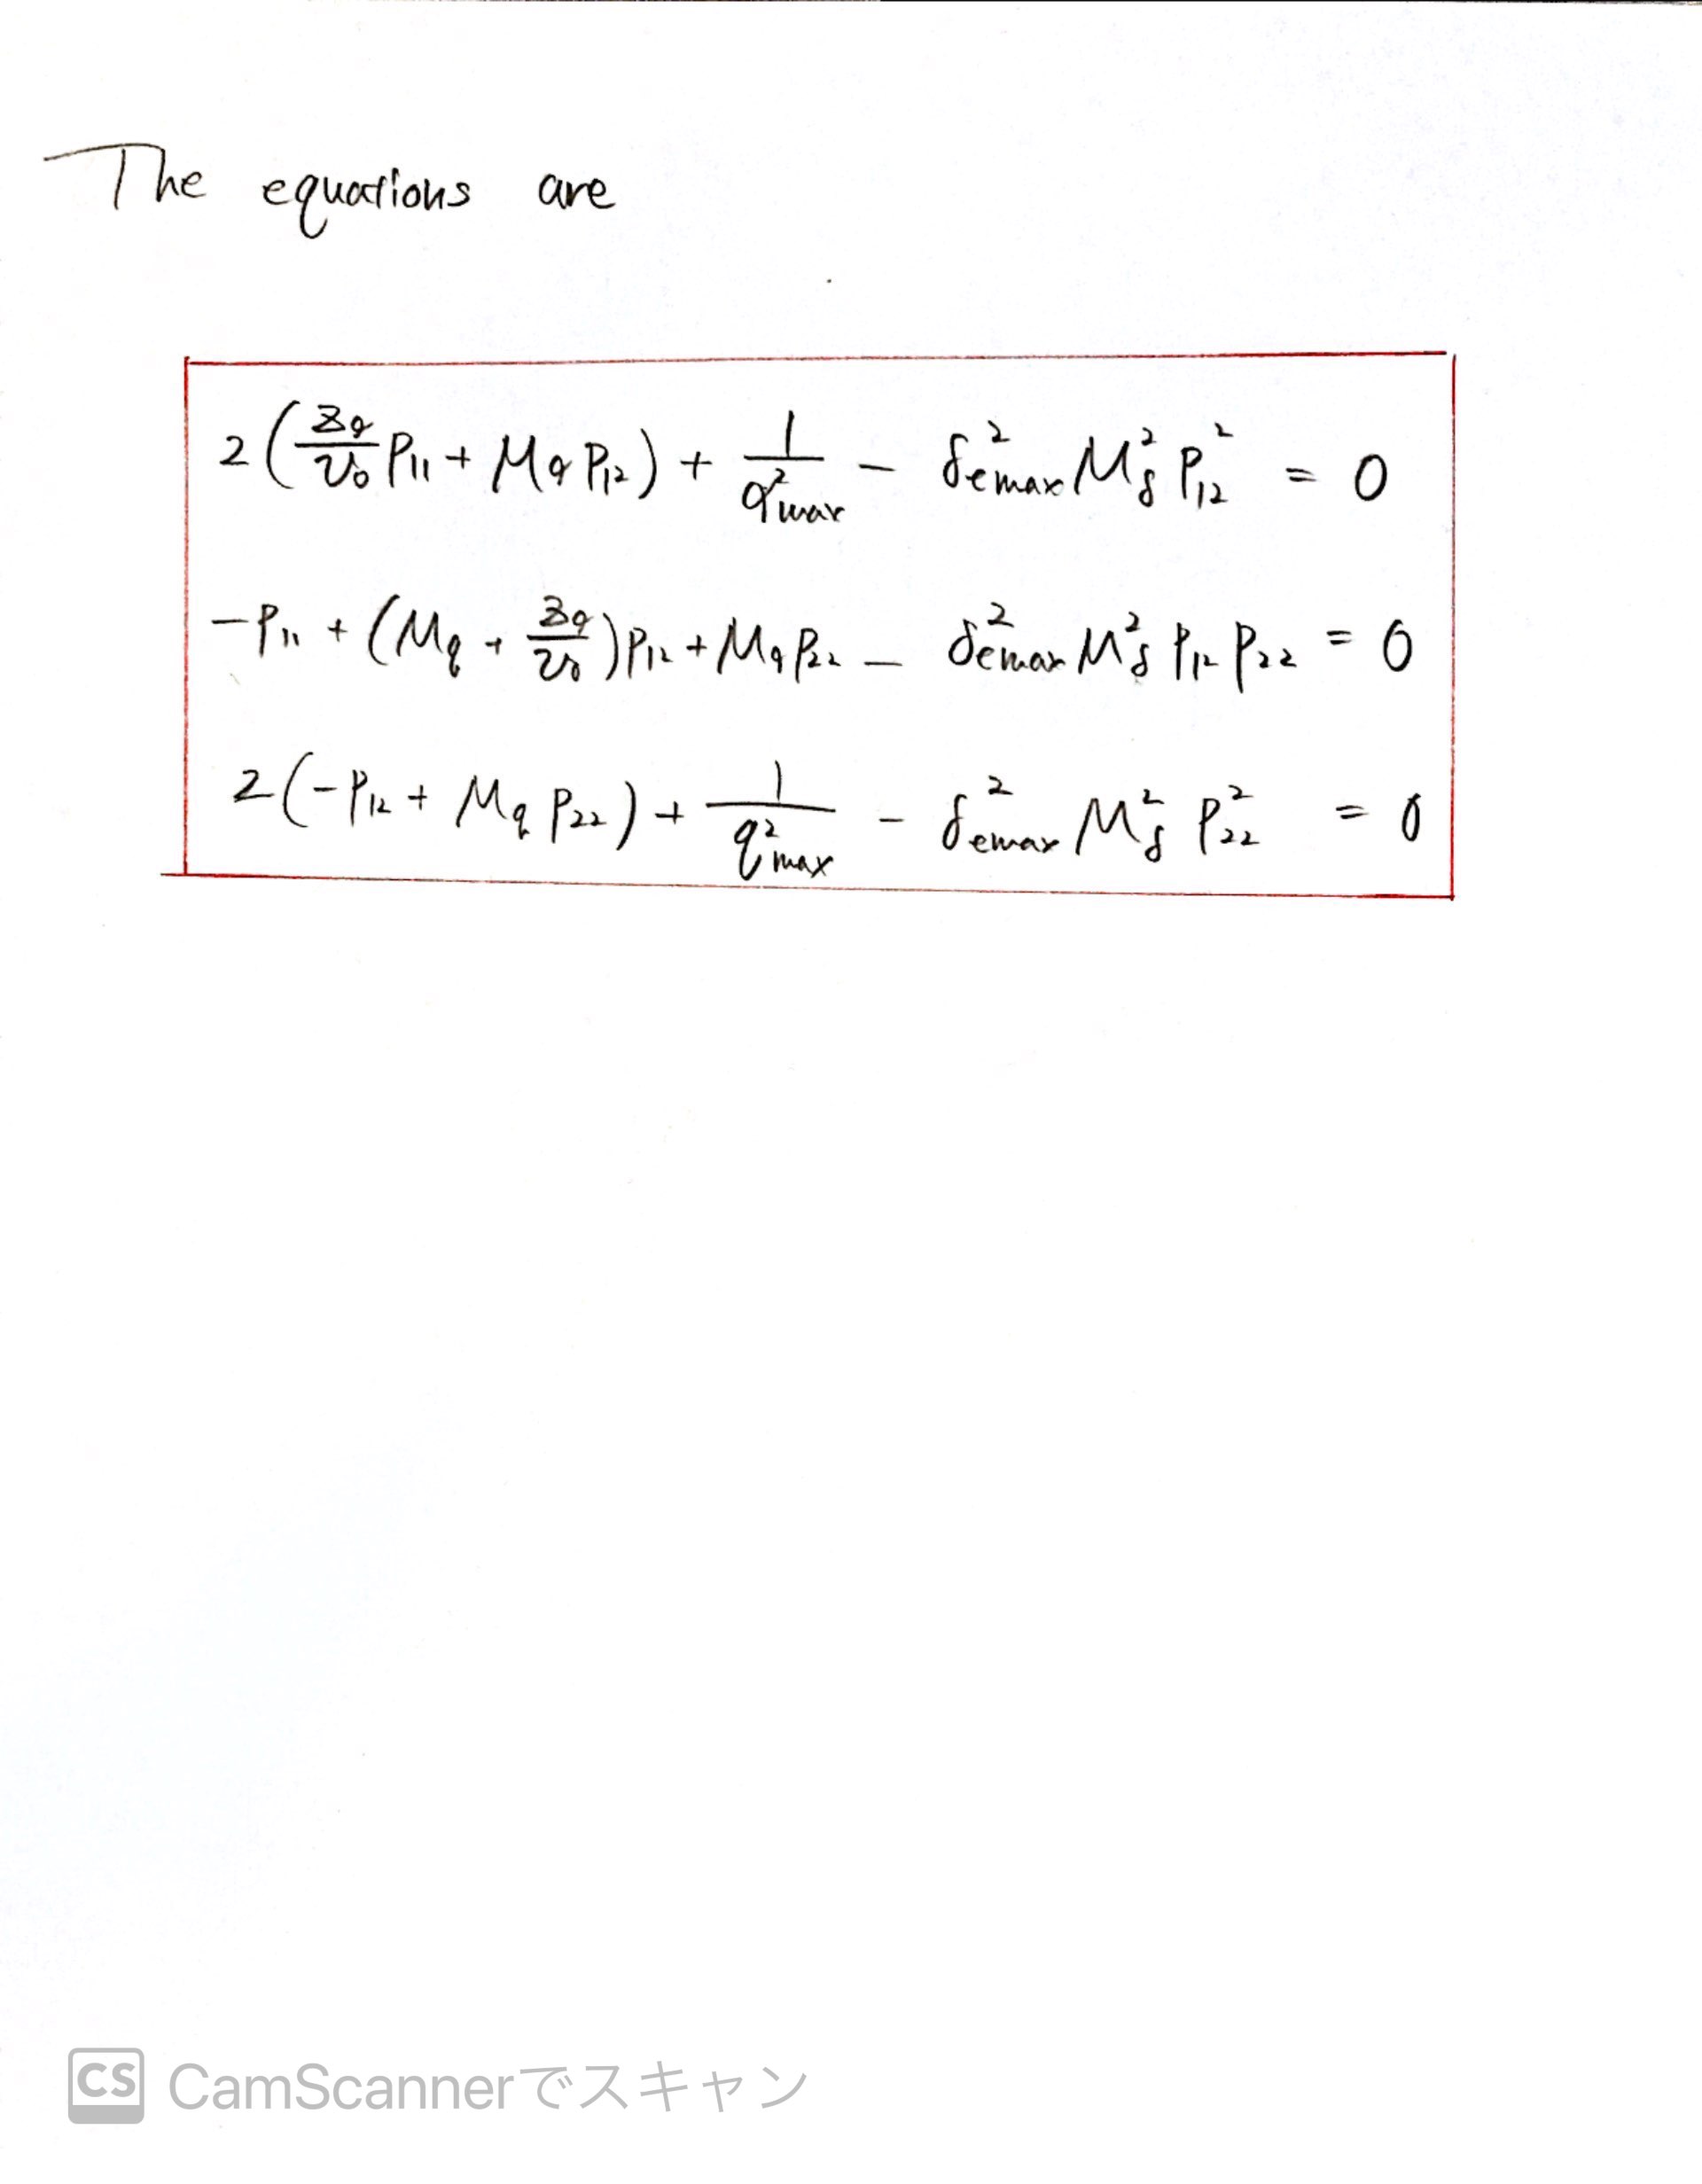 The equations are
2(Zα/V₀ P₁₁ + Mα P₁₂) + 1/α²max − δ²emax M²δ P²₁₂ = 0
−P₁₁ + (Mq + Zα/V₀)P₁₂ + Mα P₂₂ − δ²emax M²δ P₁₂ P₂₂ = 0
2(−P₁₂ + Mq P₂₂) + 1/q²max − δ²emax M²δ P²₂₂ = 0
CS CamScannerでスキャン